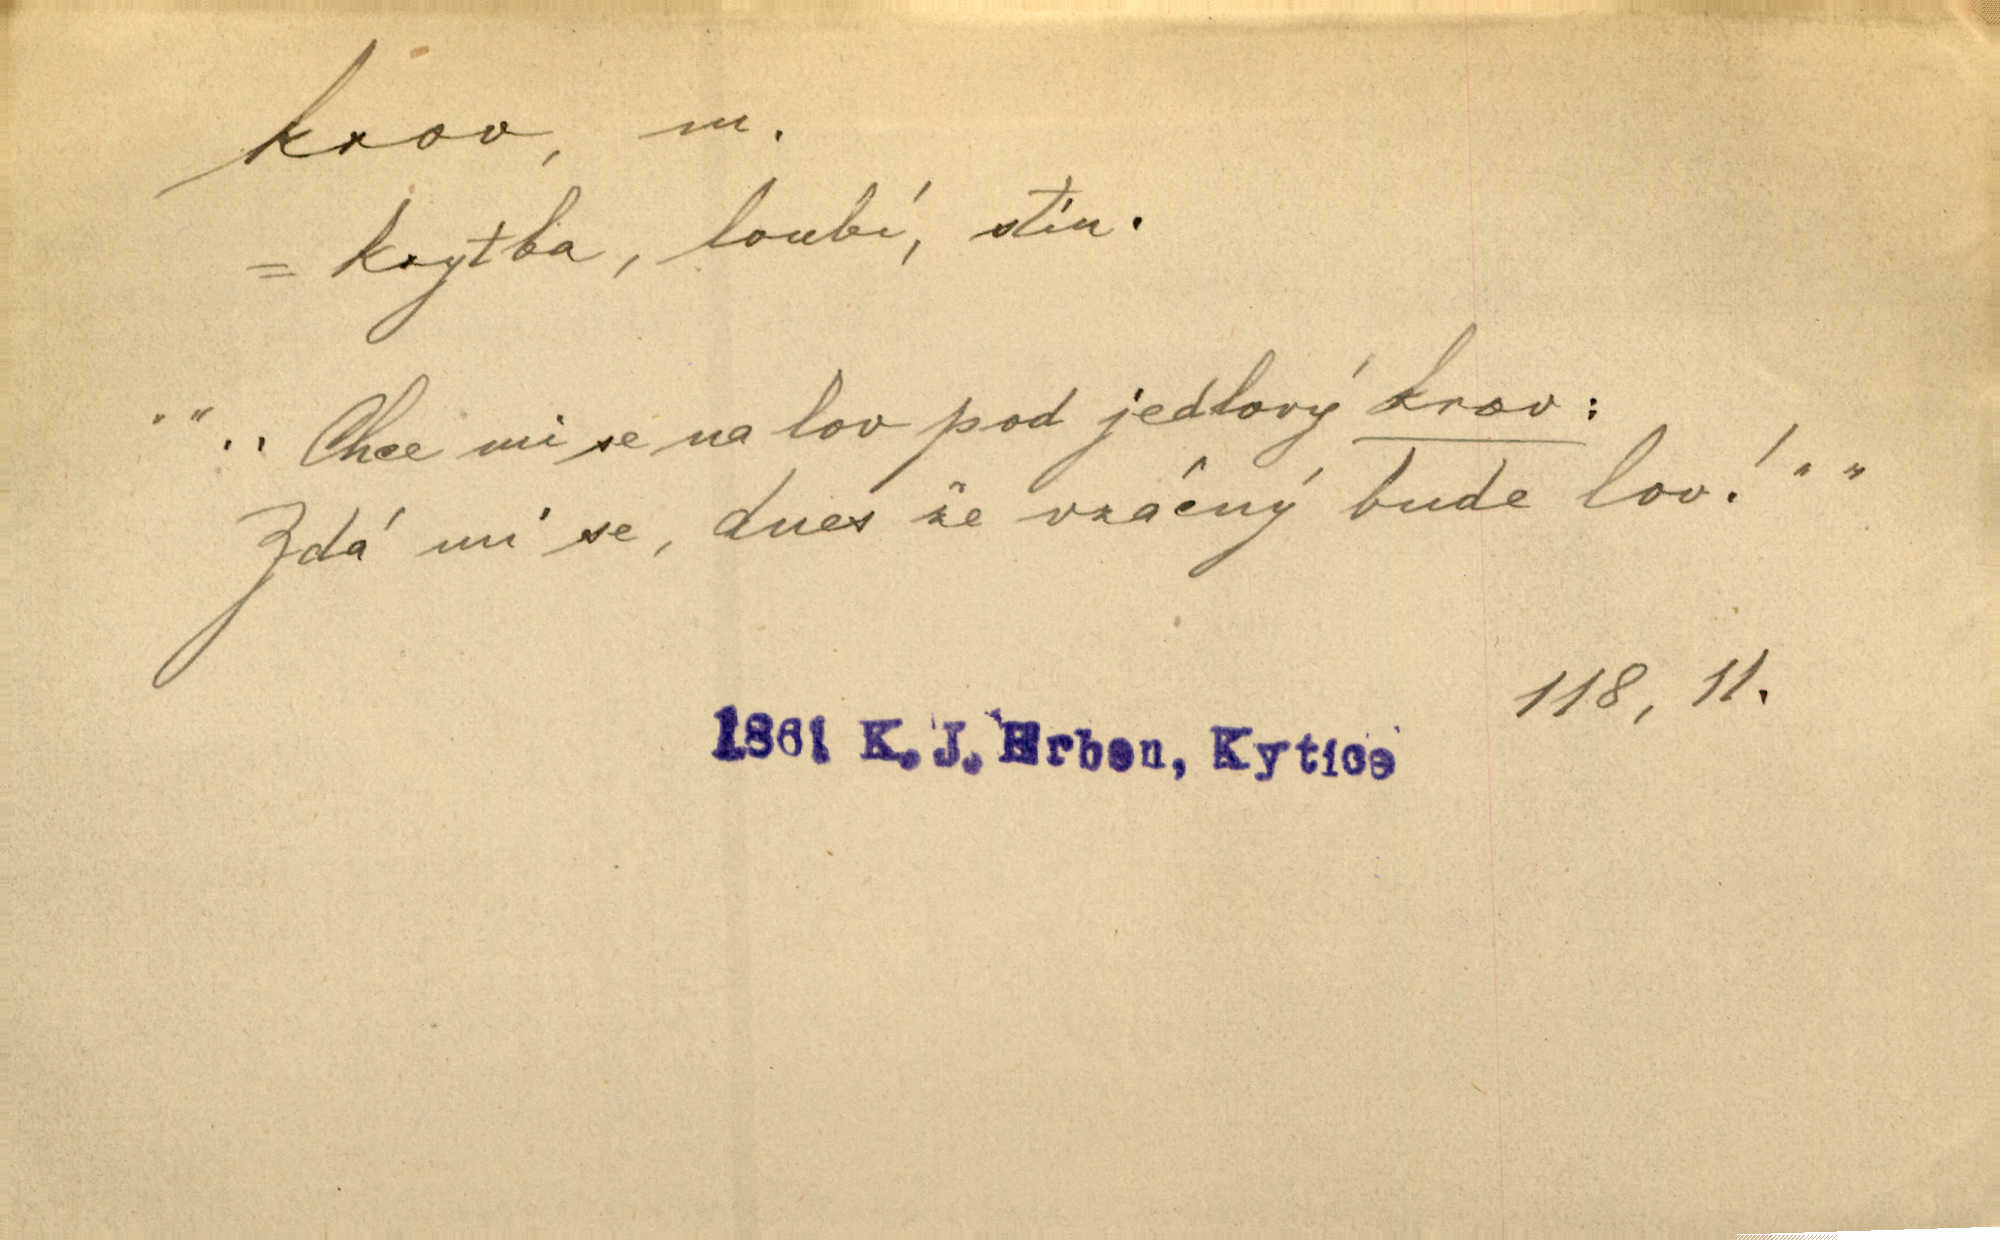 krov, m.
= krytba, loubí, stín.
" " .. Chce mi se na lov pod jedlový krov:
Zdá mi se, dnes že vzácný bude lov!" "
118, 11.
1861 K. J. Erben, Kytice